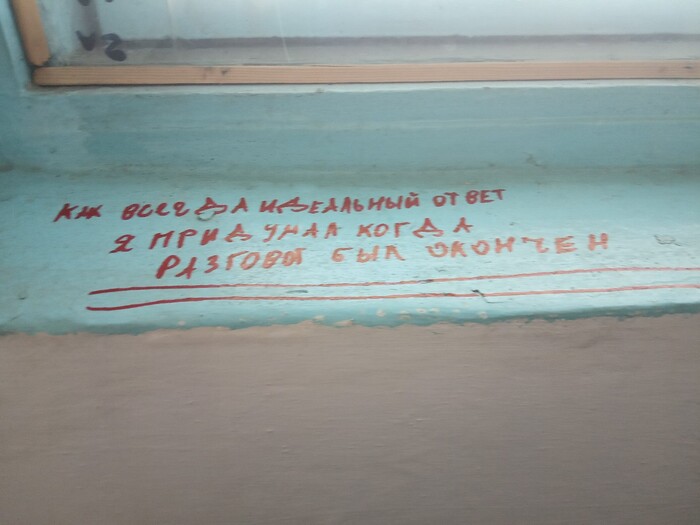 КАК ВСЕГДА ИДЕАЛЬНЫЙ ОТВЕТ
Я ПРИДУМАЛ КОГДА
РАЗГОВОР БЫЛ ОКОНЧЕН